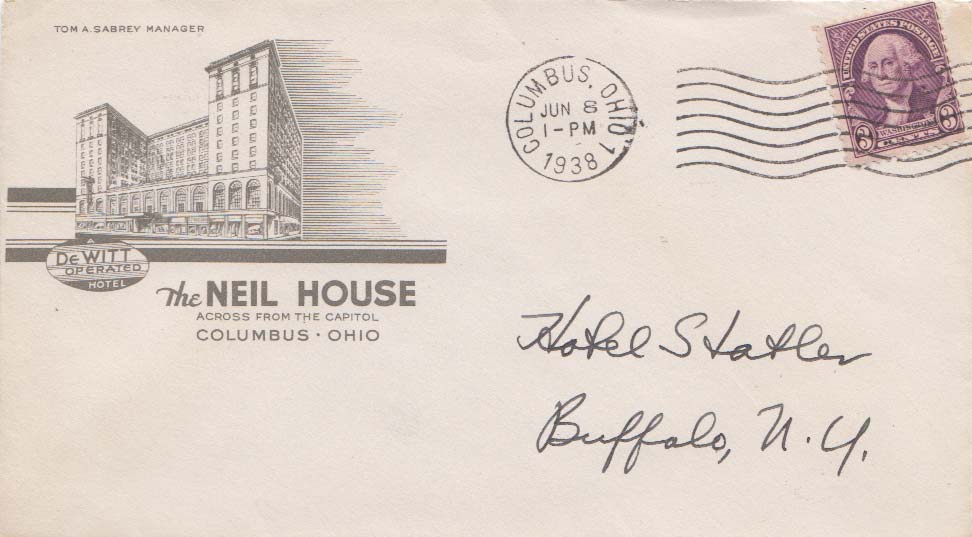 TOM A. SABREY MANAGER
DEWITT
OPERATED
HOTEL
The NEIL HOUSE
ACROSS FROM THE CAPITOL
COLUMBUS · OHIO
COLUMBUS, OHIO 1
JUN 8
1-PM
1938
UNITED STATES POSTAGE
3 WASHINGTON 3
CENTS
Hotel Statler
Buffalo, N.Y.